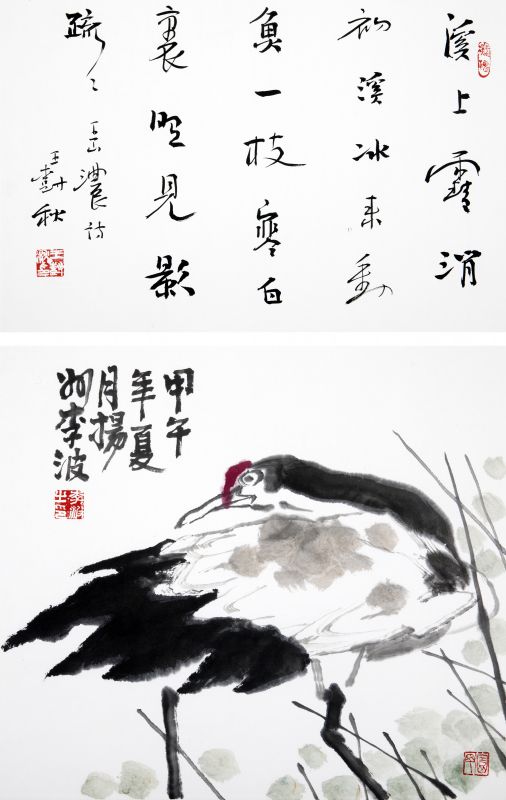 溪上消
初溪冰未動
魚一枝寒白
裏照见影
疏々
王樹秋
甲午
年夏
月揚
州李波
李波之印